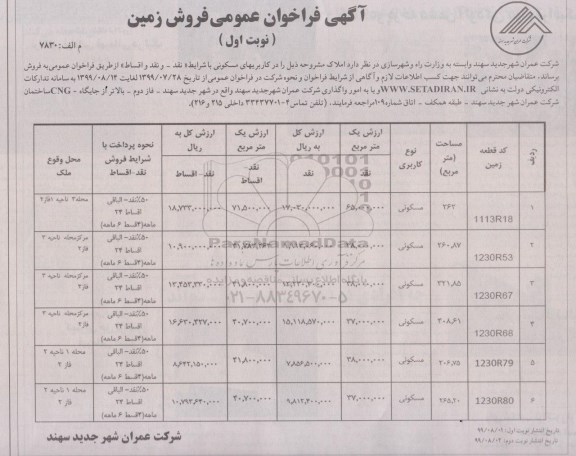 آگهی فراخوان عمومی فروش زمین
( نوبت اول )
م الف: ۷۸۳۰
شرکت عمران شهر جدید سهند وابسته به وزارت راه و شهرسازی در نظر دارد املاک مشروحه ذیل را در کاربریهای مسکونی با شرایط « نقد - و نقد و اقساط » از طریق فراخوان عمومی به فروش
برساند، متقاضیان محترم می‌توانند جهت کسب اطلاعات لازم و آگاهی از شرایط فراخوان و نحوه شرکت در فراخوان عمومی از تاریخ ۱۳۹۹/۰۷/۲۸ لغایت ۱۳۹۹/۰۸/۱۴ به سامانه تدارکات
الکترونیکی دولت به نشانی WWW.SETADIRAN.IR و یا به امور واگذاری شرکت عمران شهر جدید سهند واقع در شهر جدید سهند - فاز دوم - بالاتر از جایگاه CNG - ساختمان
شرکت عمران شهر جدید سهند - طبقه همکف - اتاق شماره ۱۰۹ مراجعه فرمایند. ( تلفن تماس ۴-۳۳۴۳۷۷۰۱ داخلی ۲۱۵ و ۲۱۶).
ردیف | کد قطعه زمین | مساحت (متر مربع) | نوع کاربری | ارزش یک متر مربع نقد | ارزش کل به ریال نقد | ارزش یک متر مربع نقد اقساط | ارزش کل به ریال نقد - اقساط | نحوه پرداخت با شرایط فروش نقد - اقساط | محل وقوع ملک
۱ | 1113R18 | ۲۶۲ | مسکونی | ۶۵,۰۰۰,۰۰۰ | ۱۷,۰۳۰,۰۰۰,۰۰۰ | ۷۱,۵۰۰,۰۰۰ | ۱۸,۷۳۳,۰۰۰,۰۰۰ | ۵۰٪نقد - الباقی اقساط ۲۴ ماهه(۴قسط ۶ ماهه)
۲ | 1230R53 | ۲۶۰,۸۷ | مسکونی | ۳۸,۰۰۰,۰۰۰ | ۵۰٪نقد - الباقی اقساط ۲۴ ماهه(۴قسط ۶ ماهه) | مرکزمحله ناحیه ۳ فاز۲
۳ | 1230R67 | ۳۲۱,۸۵ | مسکونی | ۳۸,۰۰۰,۰۰۰ | ۴۱,۸۰۰,۰۰۰ | ۱۳,۴۵۳,۳۳۰,۰۰۰ | ۵۰٪نقد - الباقی اقساط ۲۴ ماهه(۴قسط ۶ ماهه) | مرکزمحله ناحیه ۳ فاز۲
۴ | 1230R68 | ۴۰۸,۶۱ | مسکونی | ۳۷,۰۰۰,۰۰۰ | ۱۵,۱۱۸,۵۷۰,۰۰۰ | ۴۰,۷۰۰,۰۰۰ | ۱۶,۶۳۰,۴۲۷,۰۰۰ | ۵۰٪نقد - الباقی اقساط ۲۴ ماهه(۴قسط ۶ ماهه) | مرکزمحله ناحیه ۳ فاز۲
۵ | 1230R79 | ۲۰۶,۷۵ | مسکونی | ۳۸,۰۰۰,۰۰۰ | ۷,۸۵۶,۵۰۰,۰۰۰ | ۴۱,۸۰۰,۰۰۰ | ۸,۶۴۲,۱۵۰,۰۰۰ | ۵۰٪نقد - الباقی اقساط ۲۴ ماهه(۴قسط ۶ ماهه) | محله ۱ ناحیه ۲ فاز ۲
۶ | 1230R80 | ۲۶۵,۲۰ | مسکونی | ۳۷,۰۰۰,۰۰۰ | ۹,۸۱۲,۴۰۰,۰۰۰ | ۴۰,۷۰۰,۰۰۰ | ۱۰,۷۹۳,۶۴۰,۰۰۰ | ۵۰٪نقد - الباقی اقساط ۲۴ ماهه(۴قسط ۶ ماهه) | محله ۱ ناحیه ۲ فاز ۲
ParsNamadData
۰۲۱-۸۸۳۴۹۶۷۰-۵
تاریخ انتشار نوبت اول: ۹۹/۰۸/۰۱
تاریخ انتشار نوبت دوم: ۹۹/۰۸/۰۴
شرکت عمران شهر جدید سهند